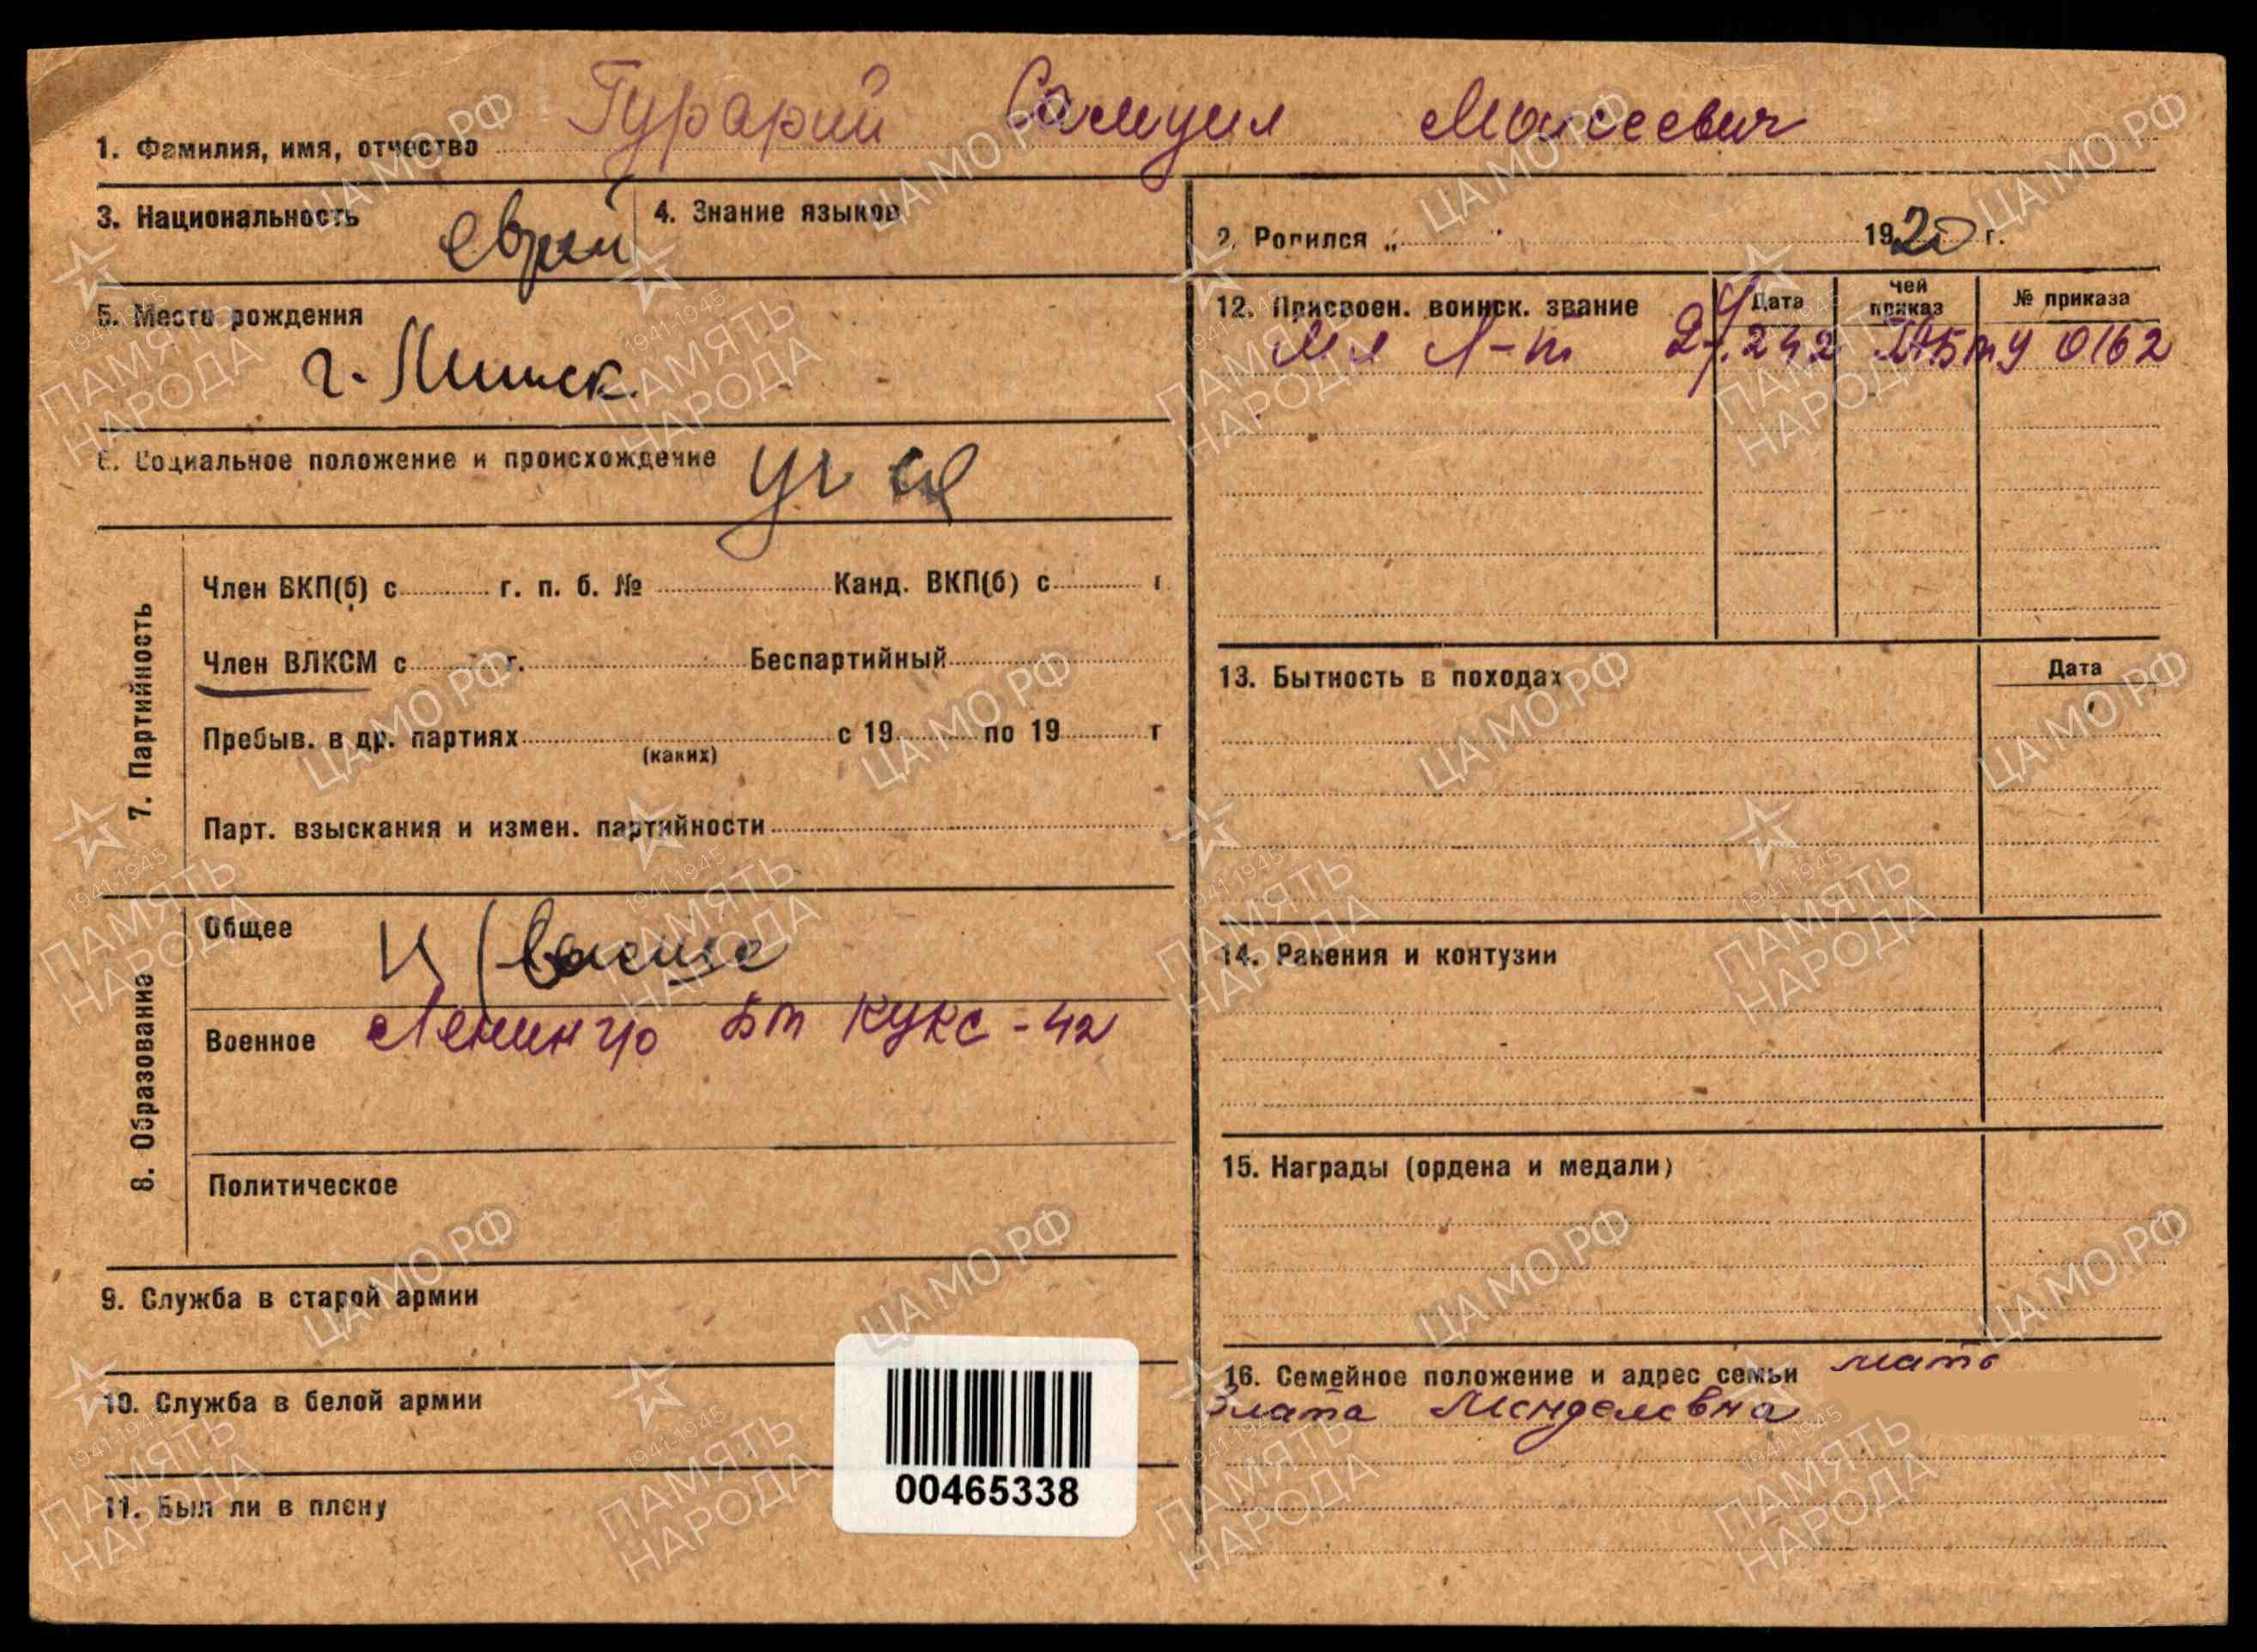 1. Фамилия, имя, отчество Гурарий Самуил Моисеевич
3. Национальность еврей
4. Знание языков
2. Родился „ " 1920 г.
5. Место рождения
г. Минск.
6. Социальное положение и происхождение
7. Партийность
Член ВКП(б) с г. п. б. № Канд. ВКП(б) с г
Член ВЛКСМ с г. Беспартийный
Пребыв. в др. партиях с 19 по 19 г
(каких)
Парт. взыскания и измен. партийности
8. Образование
Общее
Военное Ленингр БТ КУКС - 42
Политическое
9. Служба в старой армии
10. Служба в белой армии
11. Был ли в плену
00465338
12. Присвоен. воинск. звание Дата чей приказ № приказа
Мл Л-т 0162
13. Бытность в походах Дата
14. Ранения и контузии
15. Награды (ордена и медали)
16. Семейное положение и адрес семьи мать
Злата Менделевна
ЦА МО РФ
1941-1945
ПАМЯТЬ
НАРОДА